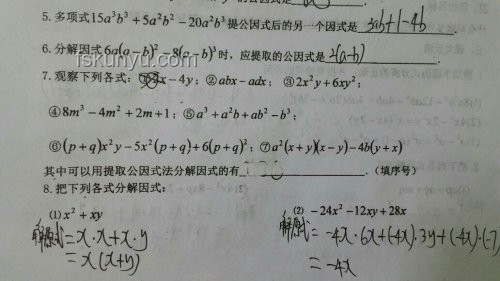 5. 多项式15a³b³+5a²b²−20a²b³提公因式后的另一个因式是 3ab+1-4b
6. 分解因式6a(a−b)²−8(a−b)³时，应提取的公因式是 2(a-b)
7. 观察下列各式：x−4y；②abx−adx；③2x²y+6xy²；
④8m³−4m²+2m+1；⑤a³+a²b+ab²−b³；
⑥(p+q)x²y−5x²(p+q)+6(p+q)²；⑦a²(x+y)(x−y)−4b(y+x)
其中可以用提取公因式法分解因式的有 .（填序号）
8. 把下列各式分解因式：
(1) x²+xy
(2) −24x²−12xy+28x
解：原式=x·x+x·y
=x(x+y)
解：原式=-4x·6x+(-4x)·3y+(-4x)·(-7)
=-4x
fskunyu.com